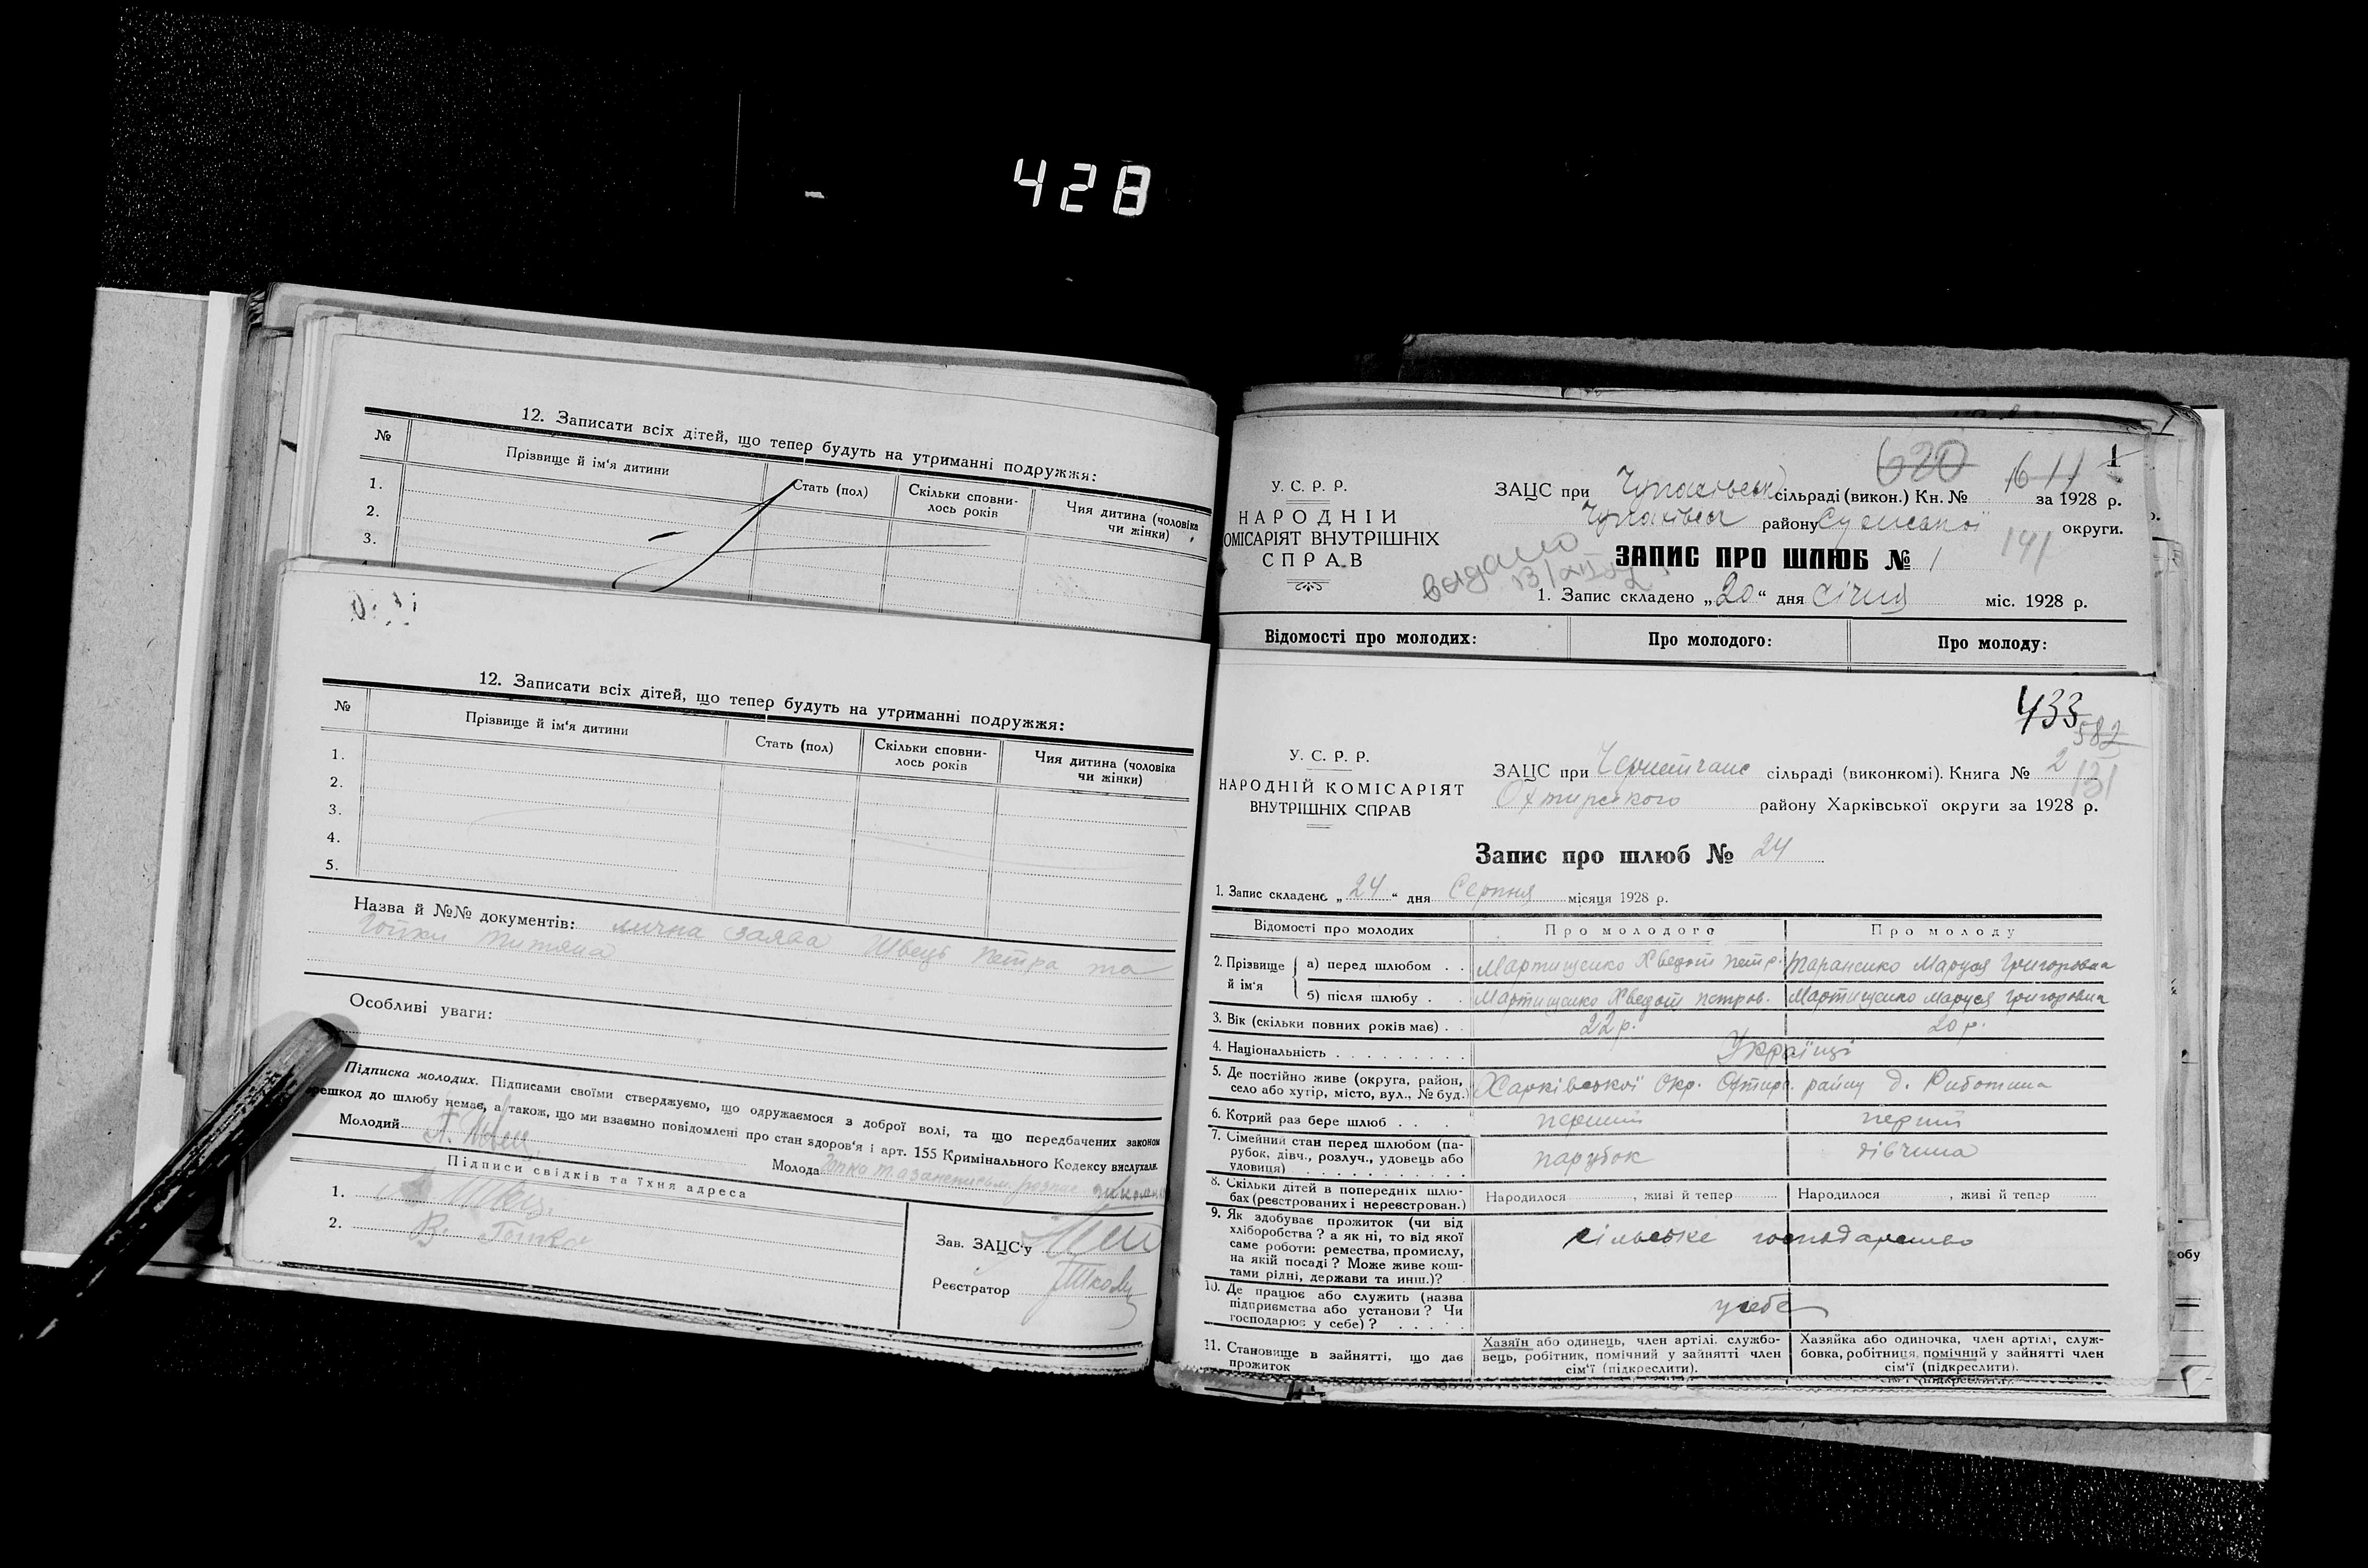 428
12. Записати всіх дітей, що тепер будуть на утриманні подружжя:
№ Прізвище й ім'я дитини Стать (пол) Скільки сповни-лось років Чия дитина (чоловіка чи жінки)
1.
2.
3.
12. Записати всіх дітей, що тепер будуть на утриманні подружжя:
№ Прізвище й ім'я дитини Стать (пол) Скільки сповни-лось років Чия дитина (чоловіка чи жінки)
1.
2.
3.
4.
5.
Назва й №№ документів: лична заява Швець Петра та
Особливі уваги:
Підписка молодих. Підписами своїми стверджуємо, що одружаємося з доброї волі, та що передбачених законом
решкод до шлюбу немає, а також, що ми взаємно повідомлені про стан здоров'я і арт. 155 Кримінального Кодексу вислухали.
Молодий П. Швец Молода
Підписи свідків та їхня адреса
1. Швец
2. В.
Зав. ЗАЦС'у
Реєстратор
620 1611 1
У. С. Р. Р.
НАРОДНІЙ
ОМІСАРІЯТ ВНУТРІШНІХ
СПРАВ
ЗАЦС при Чупахівськ сільраді (викон.) Кн. № за 1928 р.
Чупахівськ району Сумської округи.
видано
ЗАПИС ПРО ШЛЮБ № 1 141
1. Запис складено „20“ дня Січня міс. 1928 р.
Відомості про молодих: Про молодого: Про молоду:
433
582
131
У. С. Р. Р.
НАРОДНІЙ КОМІСАРІЯТ
ВНУТРІШНІХ СПРАВ
ЗАЦС при сільраді (виконкомі). Книга № 2
Охтирського району Харківської округи за 1928 р.
Запис про шлюб № 24
1. Запис складено „24“ дня Серпня місяця 1928 р.
Відомості про молодих Про молодого Про молоду
2. Прізвище й ім'я
а) перед шлюбом . . Мартищенко Хведот Петр. Тараненко Маруся Григоровна
б) після шлюбу . Мартищенко Хведот Петров. Мартищенко Маруся Григоровна
3. Вік (скільки повних років має) . . 22 р. 20 р.
4. Національність . . . . . . . . . Українці
5. Де постійно живе (округа, район, село або хутір, місто, вул., № буд.) Харківської Окр. Охтир. району
6. Котрий раз бере шлюб . . . перший перший
7. Сімейний стан перед шлюбом (па-
рубок, дівч., розлуч., удовець або
удовиця) . . . . . . . . . . парубок дівчина
8. Скільки дітей в попередніх шлю-
бах (реєстрованих і нереєстрован.) Народилося , живі й тепер Народилося , живі й тепер
9. Як здобуває прожиток (чи від
хліборобства? а як ні, то від якої
саме роботи: ремества, промислу,
на якій посаді? Може живе кош-
тами рідні, держави та инш.)? сільське господарство
10. Де працює або служить (назва
підприємства або установи? Чи
господарює у себе)? . . . . . у себе
11. Становище в зайнятті, що дає
прожиток
Хазяїн або одинець, член артілі, службо-
вець, робітник, помічний у зайнятті член
сім'ї (підкреслити).
Хазяйка або одиночка, член артілі, служ-
бовка, робітниця, помічний у зайнятті член
сім'ї (підкреслити).
обу